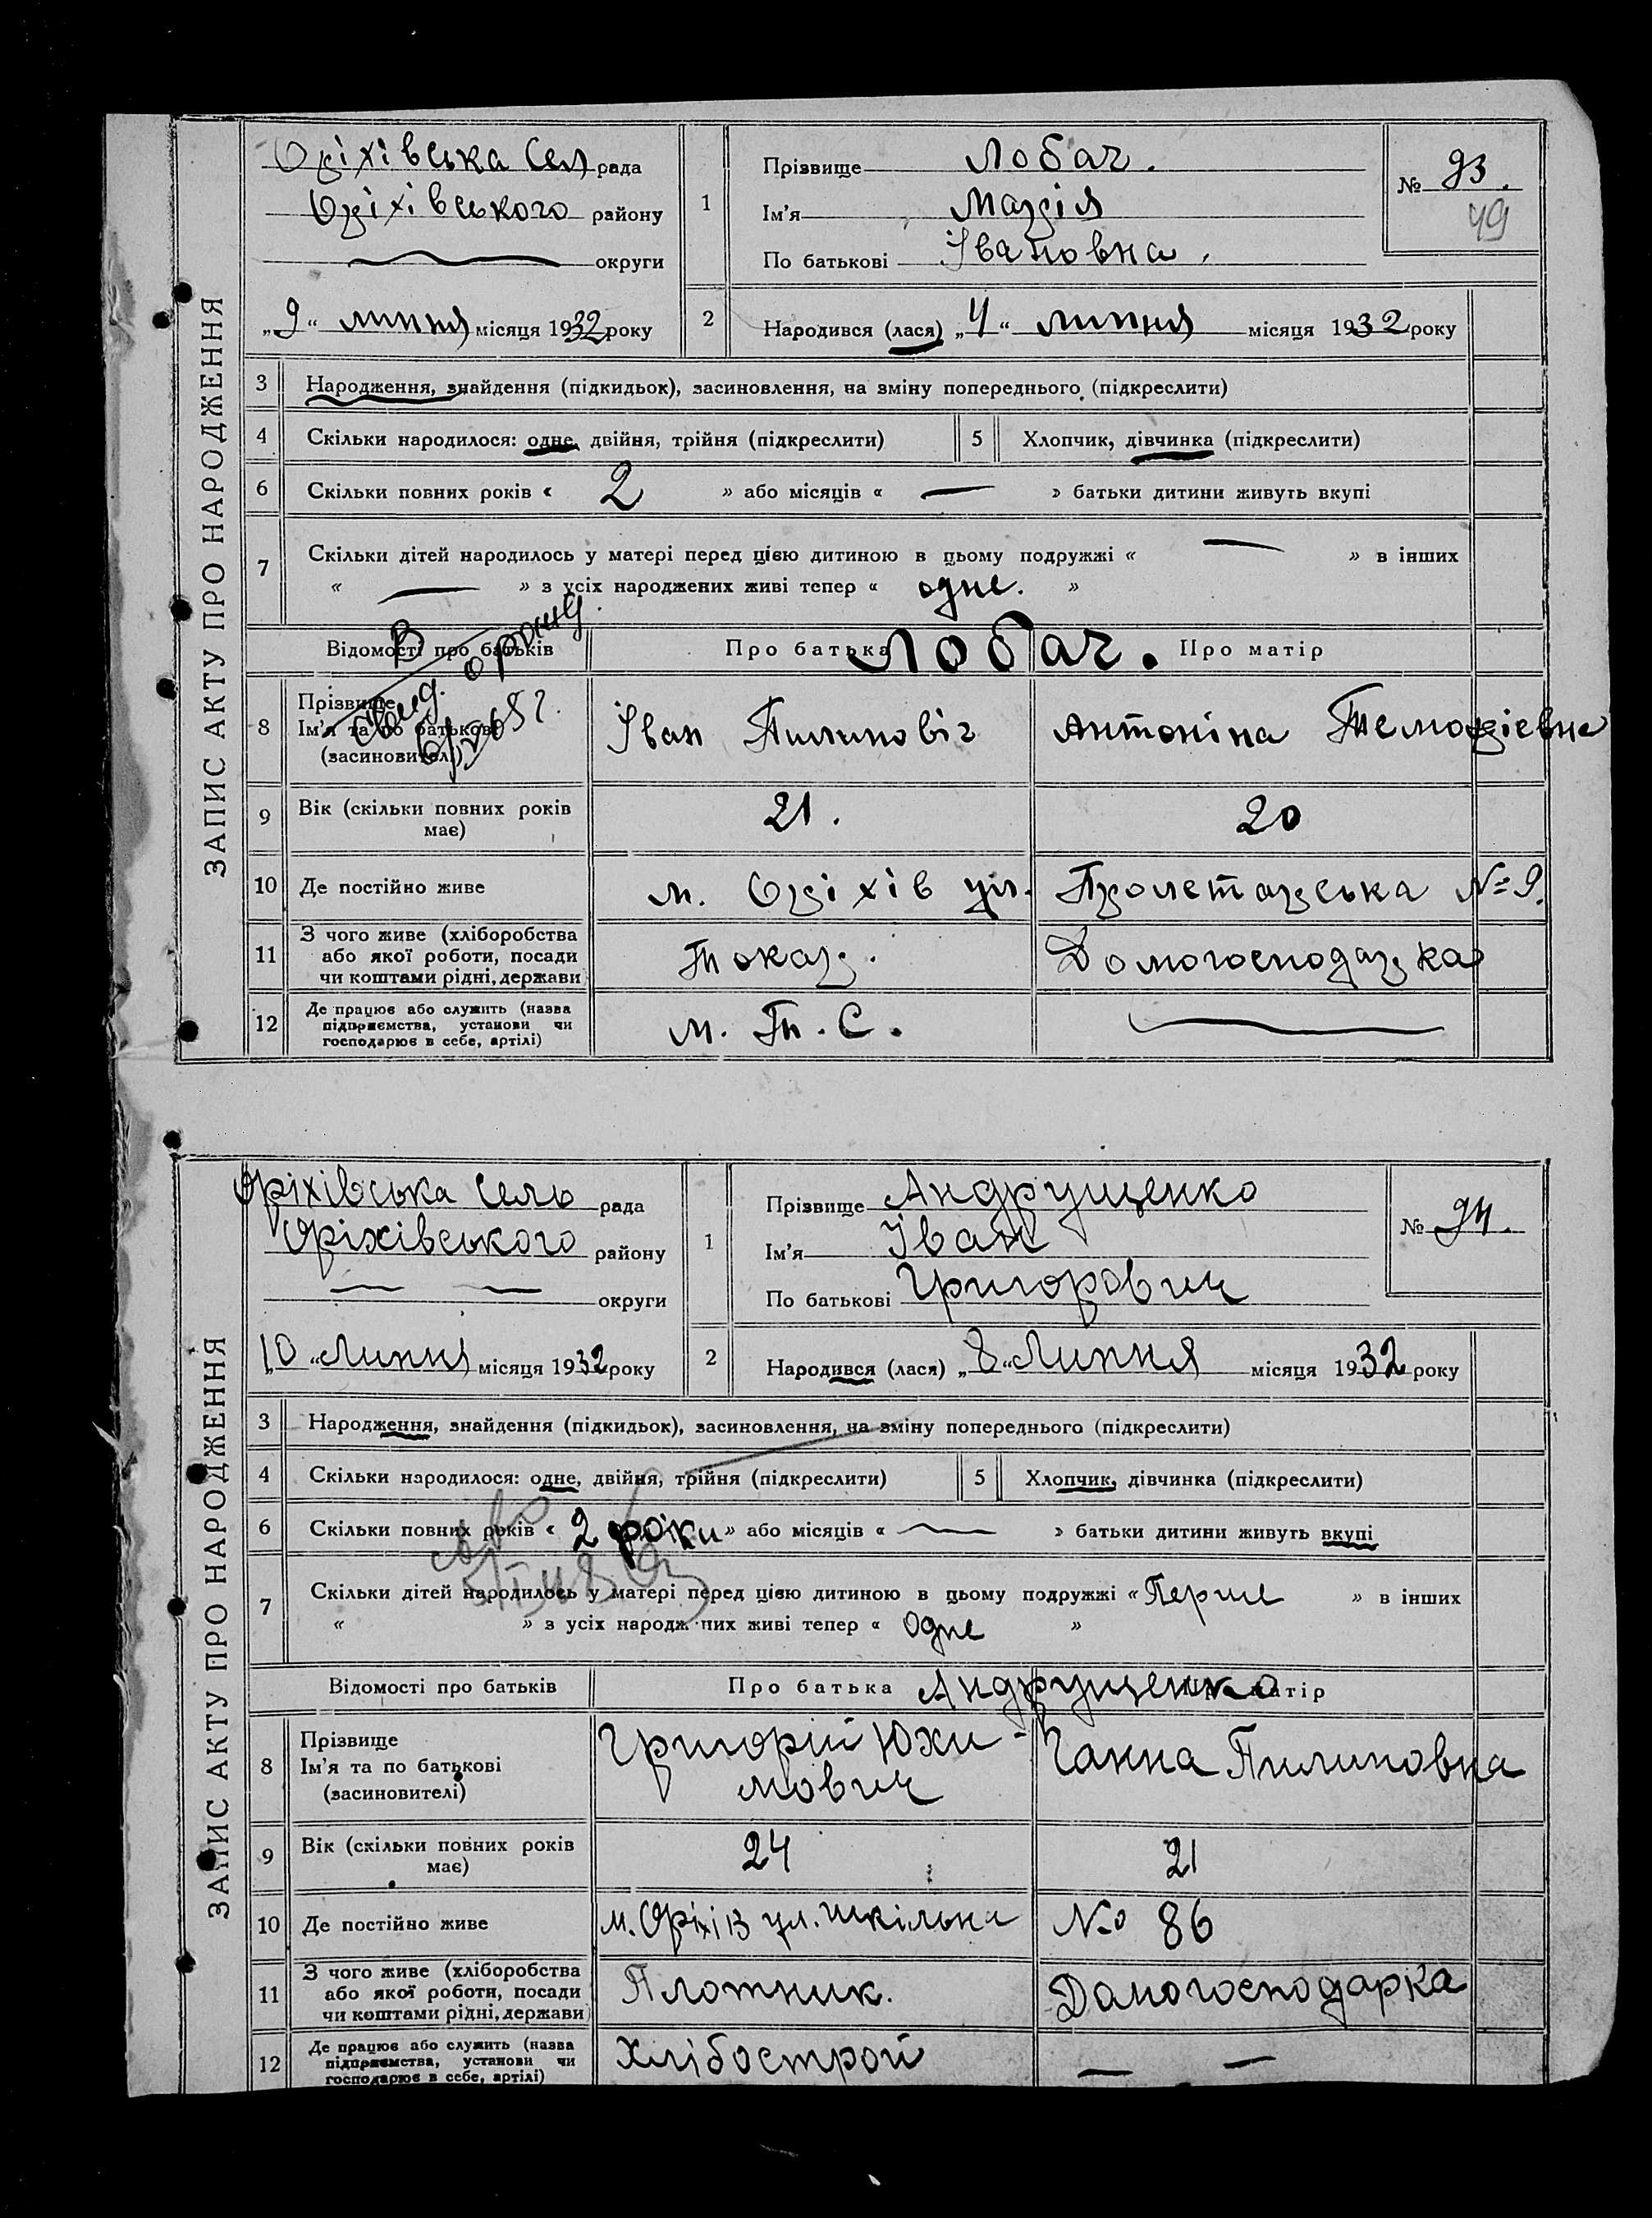 ЗАПИС АКТУ ПРО НАРОДЖЕННЯ
Оріхівська Сел рада
Оріхівського району
округи
„9“ липня місяця 1932 року
1
Прізвище Лобач.
Ім'я Марія
По батькові Івановна.
№ 93.
49
2
Народився (лася) „4“ липня місяця 1932 року
3 Народження, знайдення (підкидьок), засиновлення, на зміну попереднього (підкреслити)
4 Скільки народилося: одне, двійня, трійня (підкреслити) 5 Хлопчик, дівчинка (підкреслити)
6 Скільки повних років « 2 » або місяців « — » батьки дитини живуть вкупі
7 Скільки дітей народилось у матері перед цією дитиною в цьому подружжі « — » в інших
« — » з усіх народжених живі тепер « одне. »
Відомості про батьків Про батька Лобач. Про матір
8 Прізвище
Ім'я та по батькові
(засиновителі)
Іван Пилиповіч Антоніна
9 Вік (скільки повних років
має)
21. 20
10 Де постійно живе м. Оріхів ул. Пролетарська № 9.
11 З чого живе (хліборобства
або якої роботи, посади
чи коштами рідні, держави
Токар. Домогосподарка
12 Де працює або служить (назва
підприємства, установи чи
господарює в себе, артілі)
М. Т. С. —
ЗАПИС АКТУ ПРО НАРОДЖЕННЯ
Оріхівська Сель рада
Оріхівського району
— — округи
„10“ Липня місяця 1932 року
1
Прізвище Андрущенко
Ім'я Іван
По батькові Григорович
№ 94.
2
Народився (лася) „8“ Липня місяця 1932 року
3 Народження, знайдення (підкидьок), засиновлення, на зміну попереднього (підкреслити)
4 Скільки народилося: одне, двійня, трійня (підкреслити) 5 Хлопчик, дівчинка (підкреслити)
6 Скільки повних років « 2 роки » або місяців « — » батьки дитини живуть вкупі
7 Скільки дітей народилось у матері перед цією дитиною в цьому подружжі « Перше » в інших
« » з усіх народжених живі тепер « Одне »
Відомості про батьків Про батька Андрущенко Про матір
8 Прізвище
Ім'я та по батькові
(засиновителі)
Григорій Юхи-
мович
Ганна Пилиповна
9 Вік (скільки повних років
має)
24 21
10 Де постійно живе м. Оріхів ул. Шкільна № 86
11 З чого живе (хліборобства
або якої роботи, посади
чи коштами рідні, держави
Плотник. Домогосподарка
12 Де працює або служить (назва
підприємства, установи чи
господарює в себе, артілі)
Хлібострой — —